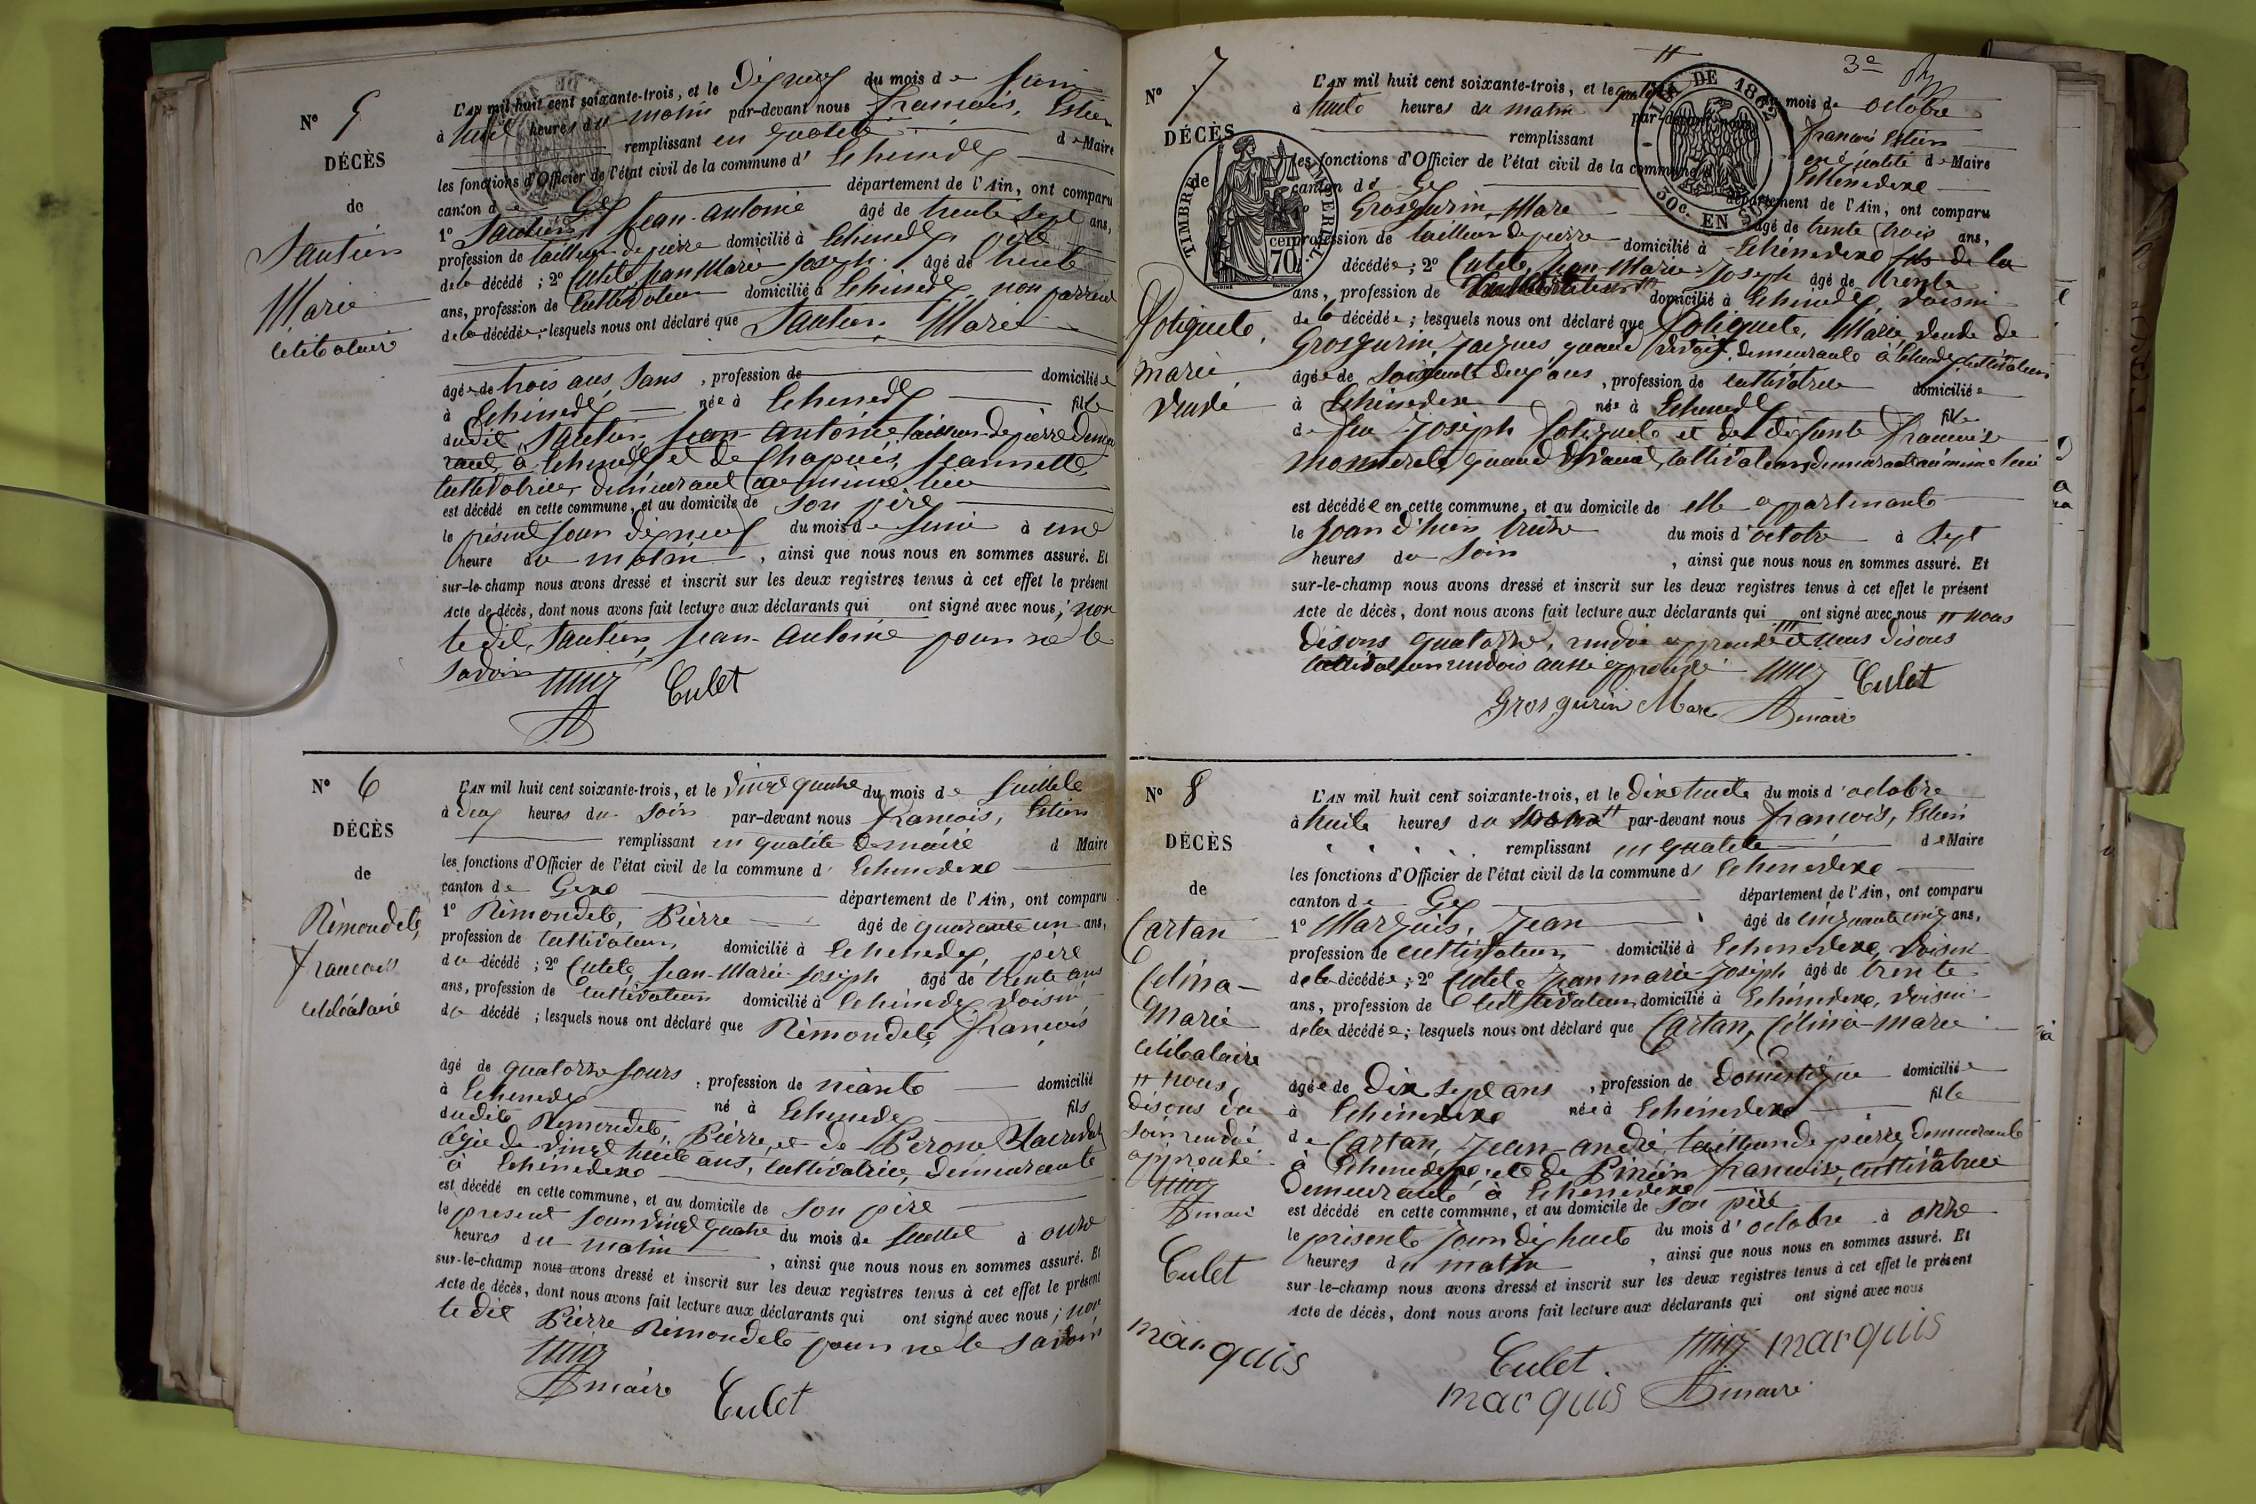 N° 5
DÉCÈS
de
Sautier
Marie
célibataire
L'AN mil huit cent soixante-trois, et le Dix neuf du mois de Juin
à huit heures du matin par-devant nous françois, Estier
remplissant en qualité de Maire
les fonctions d'Officier de l'état civil de la commune d' Echenevex
canton de Gex département de l'Ain, ont comparu
1° Sautier, Jean-antoine âgé de trente sept ans,
profession de tailleur de pierre domicilié à Echenevex père
de la décédé ; 2° Culet, Jean Marie Joseph. âgé de trente
ans, profession de Cultivateur domicilié à Echenevex, non parrent
de la décédée ; lesquels nous ont déclaré que Sautier, Marie
âgée de trois ans, sans , profession de domiciliée
à Echenevex née à Echenevex fille
dudit, Sautier, Jean-antoine tailleur de pierre demeu
rant à Echenevex et de Chapuis, Jeannette,
Cultivatrice, demeurant au même lieu
est décédé en cette commune, et au domicile de son père
le présent jour dix neuf du mois de Juin à une
heure du matin , ainsi que nous nous en sommes assuré. Et
sur-le-champ nous avons dressé et inscrit sur les deux registres tenus à cet effet le présent
Acte de décès, dont nous avons fait lecture aux déclarants qui ont signé avec nous ; non
le dit, Sautier, Jean-antoine pour ne le
savoir
Culet
N° 6
DÉCÈS
de
Rémondete,
françois
célibataire
L'AN mil huit cent soixante-trois, et le vingt quatre du mois de Juillete
à deux heures du Soir par-devant nous françois, Estier
remplissant en qualité de maire d Maire
les fonctions d'Officier de l'état civil de la commune d' Echenevexe
canton de Gexe département de l'Ain, ont comparu
1° Rémondete, Pierre âgé de quarante un ans,
profession de Cultivateur domicilié à Echenevex, père
du décédé ; 2° Culete, Jean-Marie-Joseph âgé de trente ans
ans, profession de Cultivateur domicilié à Echenevex, voisin
du décédé ; lesquels nous ont déclaré que Rémondete, françois
âgé de quatorze jours , profession de néante domicilié
à Echenevex né à Echenevex fils
dudite Rémondete, Pierre, et de Perone
agée de vingt huit ans, cultivatrice, demeurante
à Echenevexe
est décédé en cette commune, et au domicile de son père
le présent Jour vingt quatre du mois de Juillet à onze
heures du matin , ainsi que nous nous en sommes assuré. Et
sur-le-champ nous avons dressé et inscrit sur les deux registres tenus à cet effet le présent
Acte de décès, dont nous avons fait lecture aux déclarants qui ont signé avec nous ; non
le dit Pierre Rémondete pour ne le savoir
maire Culet
3e
N° 7
DÉCÈS
de
Potiquete,
marie
veuve
TIMBRE IMPÉRIAL
70
DE 1862
30c. EN SUS
L'AN mil huit cent soixante-trois, et le du mois de octobre
à huite heures du matin par-devant nous françois Estier
remplissant en qualité de Maire
les fonctions d'Officier de l'état civil de la commune d' Echenevexe
canton de Gex département de l'Ain, ont comparu
1° Grosgurin, Marc âgé de trente trois ans,
profession de tailleur de pierre domicilié à Echenevexe fils de la
décédée ; 2° Culete, Jean-Marie-Joseph âgé de trente
ans, profession de domicilié à Echenevex, voisin
de la décédée ; lesquels nous ont déclaré que Potiquete, Marie, veuve de
Grosgurin, Jacques, quand vivait, demeurante à Echenevex, cultivateur
âgée de Soixante deux ans , profession de cultivatrice domiciliée
à Echenevexe née à Echenevex fille
de feu Joseph Potiquete et de défante françoise
quand vivant, cultivateurs, demeurant au même lieu
est décédée en cette commune, et au domicile de elle appartenante
le Jour d'hier treize du mois d'octobre à Sept
heures du Soir , ainsi que nous nous en sommes assuré. Et
sur-le-champ nous avons dressé et inscrit sur les deux registres tenus à cet effet le présent
Acte de décès, dont nous avons fait lecture aux déclarants qui ont signé avec nous # nous
disons quatorze, renvoi approuvé et nous disons
Cultivateur renvois aussi approuvé Culet
Grosgurin Marc maire
N° 8
DÉCÈS
de
Cartan
Célina-
Marie
célibataire
# nous
disons du
soir renvoi
approuvé
maire
Culet
marquis
L'AN mil huit cent soixante-trois, et le dixe huite du mois d'octobre
à huite heures du par-devant nous françois, Estier
remplissant en qualité de Maire
les fonctions d'Officier de l'état civil de la commune d' Echenevexe
canton de Gex département de l'Ain, ont comparu
1° Marquis, Jean âgé de cinquante cinq ans,
profession de cultivateur domicilié à Echenevexe, voisin
de la décédée ; 2° Culete Jean marie-Joseph âgé de trente
ans, profession de Cultivateur, domicilié à Echenevexe, voisin
de la décédée ; lesquels nous ont déclaré que Cartan, Célina-marie
âgée de Dix sept ans , profession de domestique domiciliée
à Echenevexe née à Echenevexe fille
de Cartan, Jean-andré, tailleur de pierre, demeurante
à Echenevexe, et de françoise, cultivatrice
demeurante à Echenevexe
est décédé en cette commune, et au domicile de son père
le présente Jour dix huite du mois d'octobre à onze
heures du matin , ainsi que nous nous en sommes assuré. Et
sur-le-champ nous avons dressé et inscrit sur les deux registres tenus à cet effet le présent
Acte de décès, dont nous avons fait lecture aux déclarants qui ont signé avec nous
Culet marquis
marquis maire